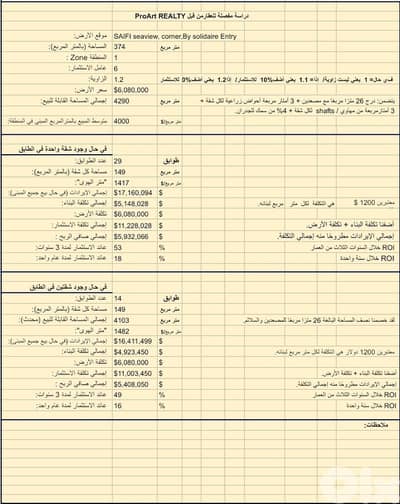 دراسة مفصلة للعقارمن قبل ProArt REALTY
موقع الارض: SAIFI seaview, corner,By solidaire Entry
المساحة (بالمتر المربع): 374 متر مربع
المنطقة Zone : 1
عامل الاستثمار: 6
الزاوية: 1.2 في حال= 1 يعني ليست زاوية/ اذا = 1.1 يعني أضف 10% للاستثمار/ إذا 1.2 يعني أضف 3% للاستثمار
سعر الأرض: $6,080,000
إجمالي المساحة القابلة للبيع: 4290 متر مربع
يتضمن: درج 26 مترًا مربعًا مع مصعدين + 3 أمتار مربعة أحواض زراعية لكل شقة +
3 أمتارمربعة من مهاوي / shafts لكل شقة + 4% من سمك للجدران.
متوسط المبيع بالمترالمربع المبني في المنطقة: 4000 متر مربع/$
في حال وجود شقة واحدة في الطابق
عدد الطوابق: 29 طوابق
مساحة كل شقة (بالمتر المربع): 149 متر مربع
"متر الهوى": 1417 متر مربع/$
إجمالي الإيرادات (في حال بيع جميع المبنى): $17,160,094 $
إجمالي تكلفة البناء: $5,148,028 $ معتبرين 1200 $ هي التكلفة لكل متر مربع لبنائه.
تكلفة الأرض: $6,080,000 $
إجمالي تكلفة الاستثمار: $11,228,028 $ أضفنا تكلفة البناء + تكلفة الأرض.
إجمالي صافي الربح : $5,932,066 $ إجمالي الإيرادات مطروحًا منه إجمالي التكلفة.
عائد الاستثمار لمدة 3 سنوات: 53 % ROI خلال السنوات الثلاث من العمار
عائد الاستثمار لمدة عام واحد: 18 % ROI خلال سنة واحدة
في حال وجود شقتين في الطابق
عدد الطوابق: 14 طوابق
مساحة كل شقة (بالمتر المربع): 149 متر مربع
إجمالي المساحة القابلة للبيع (محدث): 4103 متر مربع لقد خصمنا نصف المساحة البالغة 26 مترًا مربعًا للمصعدين والسلالم.
"متر الهوى": 1482 متر مربع/$
إجمالي الإيرادات (في حال بيع جميع المبنى): $16,411,499 $
إجمالي تكلفة البناء: $4,923,450 $ معتبرين 1200 دولار هي التكلفة لكل متر مربع لبنائه.
تكلفة الأرض: $6,080,000 $
إجمالي تكلفة الاستثمار: $11,003,450 $ أضفنا تكلفة البناء + تكلفة الأرض.
إجمالي صافي الربح : $5,408,050 $ إجمالي الإيرادات مطروحًا منه إجمالي التكلفة.
عائد الاستثمار لمدة 3 سنوات: 49 % ROI خلال السنوات الثلاث من العمار
عائد الاستثمار لمدة عام واحد: 16 % ROI خلال سنة واحدة
ملاحظات: